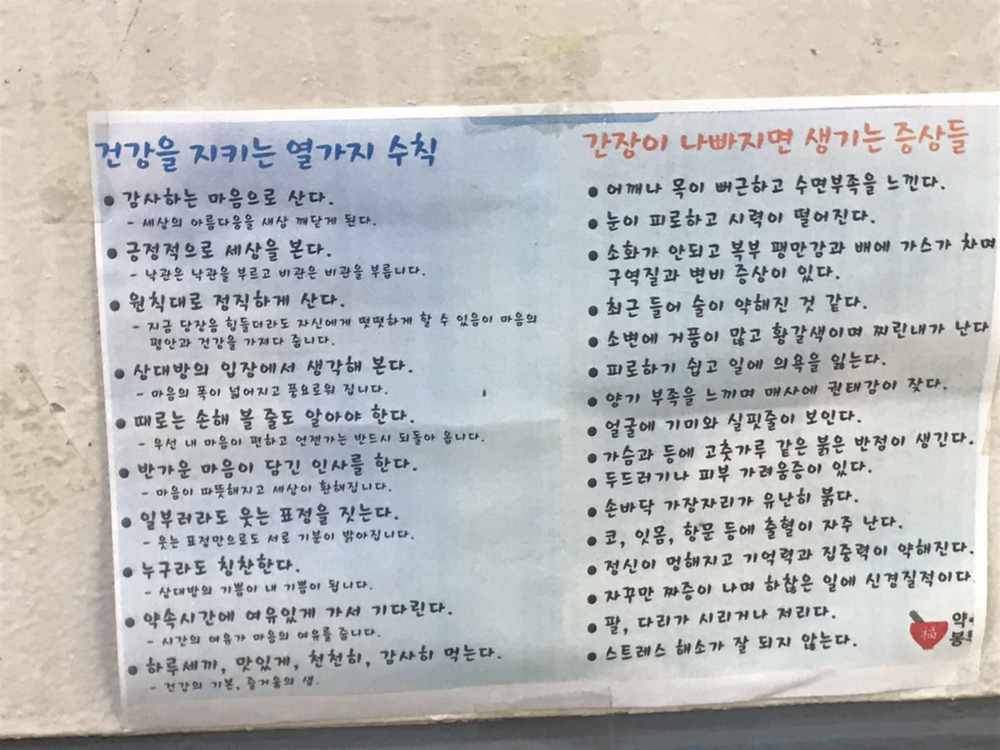 건강을 지키는 열가지 수칙
● 감사하는 마음으로 산다.
- 세상의 아름다움을 새삼 깨닫게 된다.
● 긍정적으로 세상을 본다.
- 낙관은 낙관을 부르고 비관은 비관을 부릅니다.
● 원칙대로 정직하게 산다.
- 지금 당장은 힘들더라도 자신에게 떳떳하게 할 수 있음이 마음의
평안과 건강을 가져다 줍니다.
● 상대방의 입장에서 생각해 본다.
- 마음의 폭이 넓어지고 풍요로워 집니다.
● 때로는 손해 볼 줄도 알아야 한다.
- 우선 내 마음이 편하고 언젠가는 반드시 되돌아 옵니다.
● 반가운 마음이 담긴 인사를 한다.
- 마음이 따뜻해지고 세상이 환해집니다.
● 일부러라도 웃는 표정을 짓는다.
- 웃는 표정만으로도 서로 기분이 밝아집니다.
● 누구라도 칭찬한다.
- 상대방의 기쁨이 내 기쁨이 됩니다.
● 약속시간에 여유있게 가서 기다린다.
- 시간의 여유가 마음의 여유를 줍니다.
● 하루세끼, 맛있게, 천천히, 감사히 먹는다.
- 건강의 기본, 즐거움의 샘.
간장이 나빠지면 생기는 증상들
● 어깨나 목이 뻐근하고 수면부족을 느낀다.
● 눈이 피로하고 시력이 떨어진다.
● 소화가 안되고 복부 팽만감과 배에 가스가 차며
구역질과 변비 증상이 있다.
● 최근 들어 술이 약해진 것 같다.
● 소변에 거품이 많고 황갈색이며 찌린내가 난다
● 피로하기 쉽고 일에 의욕을 잃는다.
● 양기 부족을 느끼며 매사에 권태감이 잦다.
● 얼굴에 기미와 실핏줄이 보인다.
● 가슴과 등에 고춧가루 같은 붉은 반점이 생긴다.
● 두드러기나 피부 가려움증이 있다.
● 손바닥 가장자리가 유난히 붉다.
● 코, 잇몸, 항문 등에 출혈이 자주 난다.
● 정신이 멍해지고 기억력과 집중력이 약해진다.
● 자꾸만 짜증이 나며 하찮은 일에 신경질적이다.
● 팔, 다리가 시리거나 저리다.
● 스트레스 해소가 잘 되지 않는다.
福
약